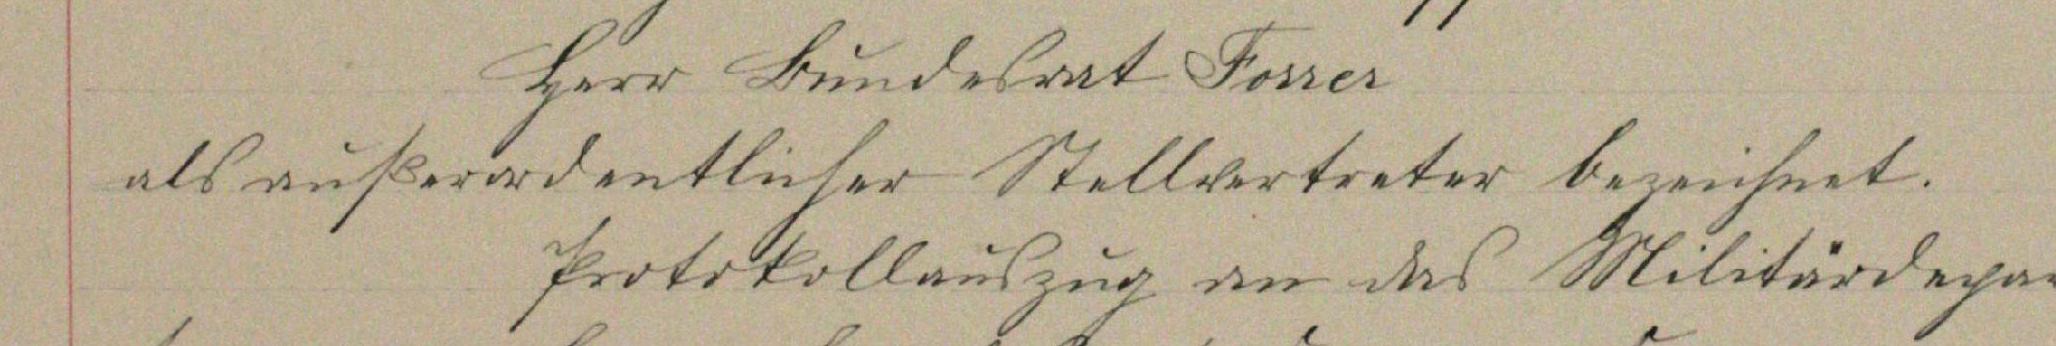 Herr Bundesrat Forrer
als außerordentlicher Stellvertreter bezeichnet.
Protokollauszug an das Militärdepar